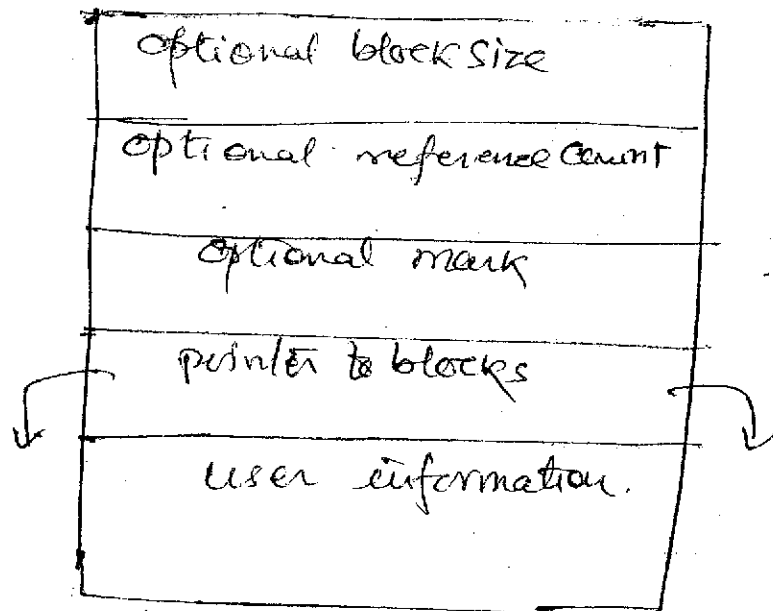 optional block size
optional reference count
optional mark
pointer to blocks
user information.